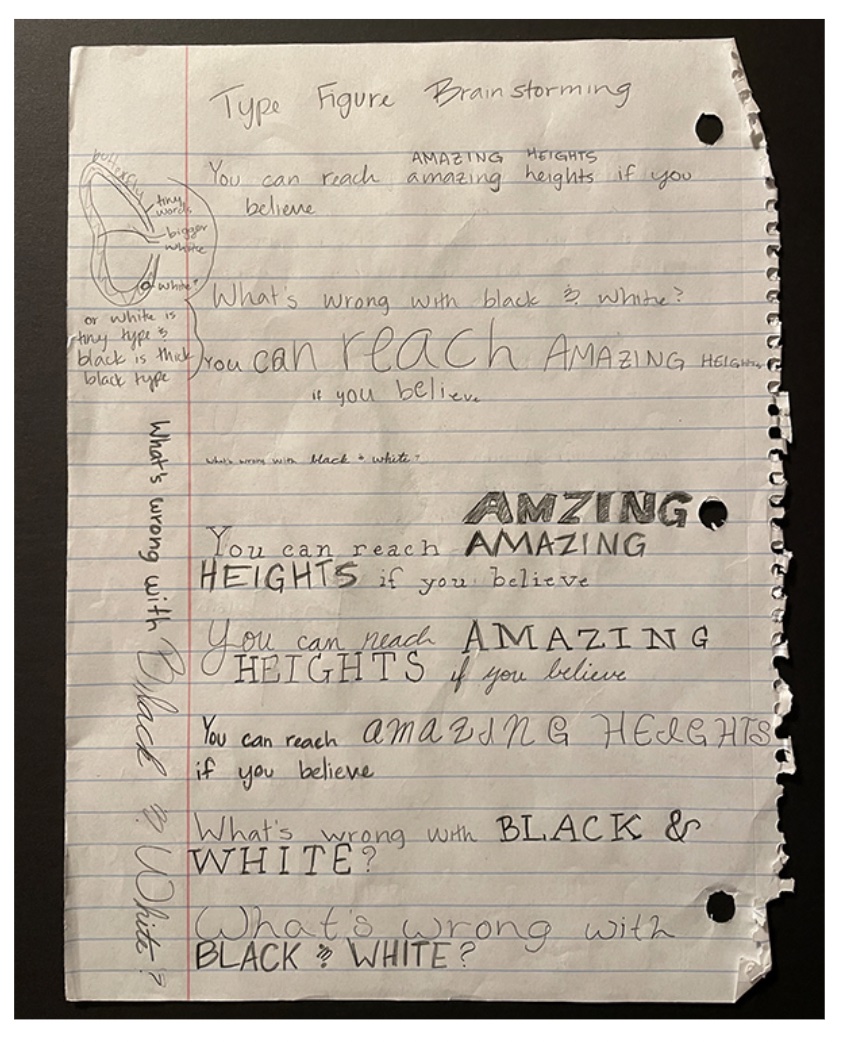 Type Figure Brainstorming
AMAZING HEIGHTS
You can reach amazing heights if you
believe
butterfly
tiny
words
bigger
white
white?
or white is
tiny type &
black is thick
black type
What's wrong with black & white?
You can reach AMAZING HEIGHTS
if you believe
What's wrong with black & white?
AMZING
You can reach AMAZING
HEIGHTS if you believe
You can reach AMAZING
HEIGHTS if you believe
You can reach AMAZING HEIGHTS
if you believe
What's wrong with BLACK &
WHITE?
What's wrong with
BLACK & WHITE?
What's wrong with Black & White?